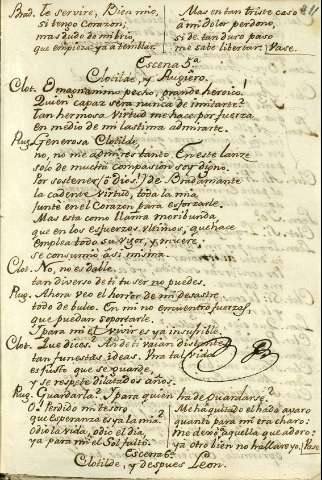 Brad. Te servire, Bien mio,
si tengo Corazon;
mas dudo de mi brio
que empieza ya a temblar.
Mas en tan triste caso
à mi dolor perdono,
si de tan duro paso
me sabe libertar. Vase.
Escena 5ª
Clotilde, y Rugiero.
Clot. O magnanimo pecho, grande heroico.
Quien capaz serà nunca de imitarte?
Tan hermosa Virtud me hace por fuerza
en medio de mi lastima admirarte.
Rug. Generosa Clotilde,
no, no me admires tanto. En este lanze
solo de mucha compasion soy digno.
Por sostener (ò dios!) de Bradamante
la cadente virtud, toda la mia
juntè en el Corazon para esforzarle.
Mas esta como llama moribunda,
que en los esfuerzos ultimos, que hace
emplea todo su vigor, y muere,
se consumiò asi misma.
Clot. No, no es dable.
tan diverso de ti tu ser no puedes.
Rug. Ahora veo el horror de mi desastre
todo de bulto. En mi no encuentro fuerzas
que puedan soportarle.
Y para mi el vivir es ya insufrible.
Clot. Que dices? Ah de ti vaian distantes
tan funestas ideas. Una tal vida
es justo que se guarde,
y se respete dilatados años.
Rug. Guardarla? Y para quien ha de guardarse?
O! Perdido mi tesoro
que esperanza es ya la mia?
Odio la vida, odio el dia,
ya para mi el Sol faltò.
Me ha quitado el hado avaro
quanto para mi era charo:
me denò aquella que adoro:
ya otro bien no hallare yo. Vase
Escena 6ª
Clotilde, y despues Leon.